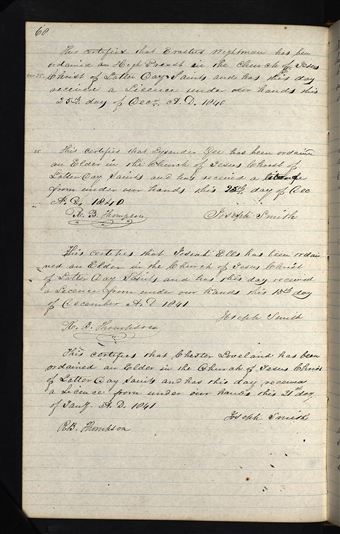 60
This certifies that Erastus Wightman has been
ordained an High Priest in the Church of Jesus
Christ of Latter Day Saints and has this day
received a Licence under our hands this
25th day of Dec. A.D. 1840
This certifies that Lysander Gee has been ordained
an Elder in the Church of Jesus Christ of
Latter Day Saints and has received a
from under our hands this 25th day of Dec
A.D. 1840
R. B. Thompson Joseph Smith
This certifies that Josiah Ells has been ordai
ned an Elder in the Church of Jesus Christ
of Latter Day Saints and has this day received
a Licence from under our hands this 13th day
of December A.D 1841
Joseph Smith
R. B. Thompson
This certifies that Chester Loveland has been
ordained an Elder in the Church of Jesus Christ
of Latter Day Saints and has this day received
a Licence from under our hands this 21st day
of Jany A.D. 1841
Joseph Smith
R.B. Thompson